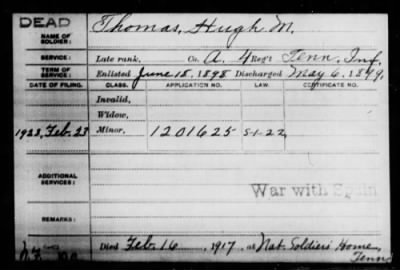 DEAD
NAME OF SOLDIER:
Thomas, Hugh M.
SERVICE:
Late rank, Co. A, 4 Reg't Tenn. Inf.
TERM OF SERVICE:
Enlisted June 18, 1898 Discharged May 6, 1899,
DATE OF FILING. CLASS. APPLICATION NO. LAW. CERTIFICATE NO.
Invalid,
Widow,
1923, Feb. 23 Minor, 1201625 S-1-22
ADDITIONAL SERVICES:
War with Spain
REMARKS:
Died Feb. 16, 1917, at Nat. Soldiers Home,
Tenn.